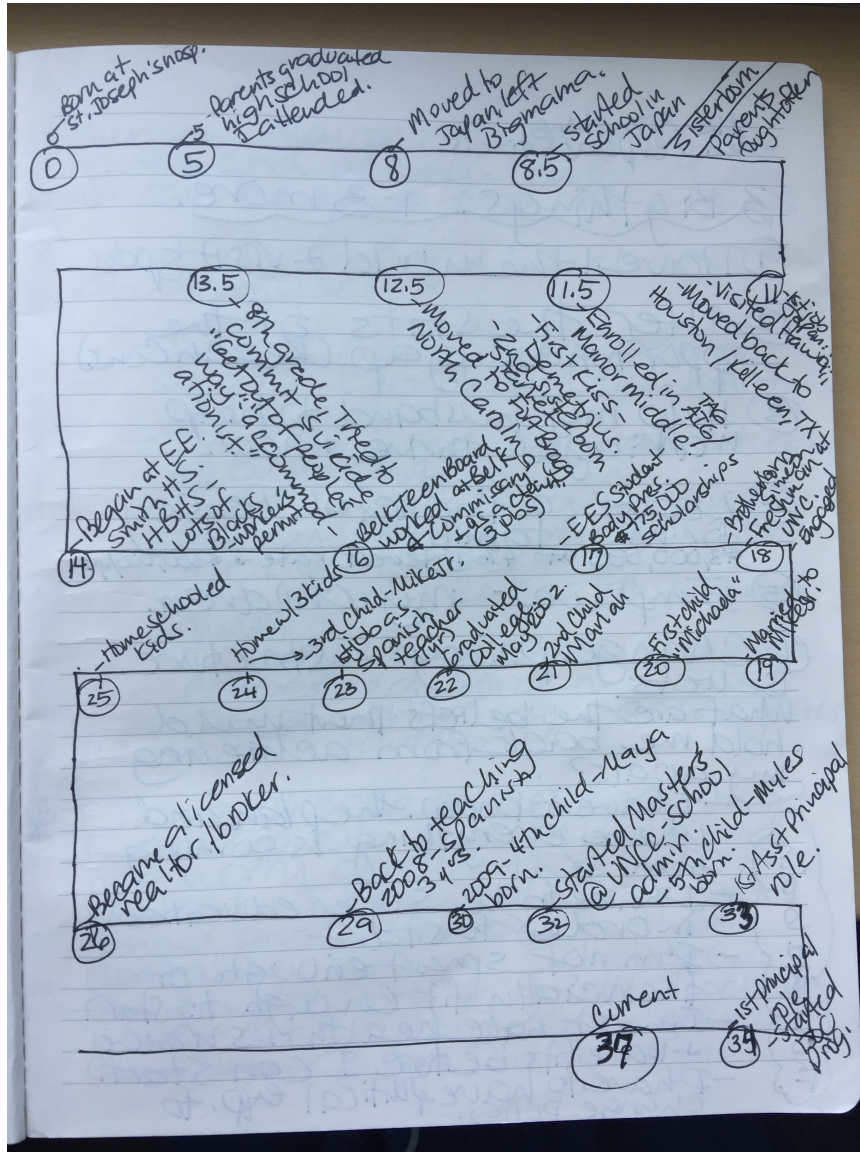 Born at
St. Joseph's hosp.
0
-5
-Parents graduated
high school
I attended.
5
-Moved to
Japan left
Big mama.
8
-started
school in
Japan
8.5
Sister born
Parents
fought often
11
-1st job
Japan.
-Visited Hawaii
-Moved back to
Houston / Kelleen, TX
11.5
-Enrolled in TAG
Manor middle. AIG/
-First Kiss-
Demetrius.
-2nd sister born
12.5
-Moved to Fort Bragg
North Carolina
13.5
-8th grade, Tried to
commit suicide
"Get out of people
way" accommod-
ationist."
14
-Began at E.E.
Smith HS.
HBHS!
Lots of
Blacks
-worker's
permit
16
-Belk Teen Board
worked at Belk
& Commissary
(3 jobs)
17
-EES Student
Body Pres.
$175,000
scholarships
18
-Brother born
-Freshmen at
UNC
Engaged
19
Married to
Mike Sr.
20
First child
"Michaela"
21
-2nd Child
Mariah
22
-Graduated
College
May 2002.
23
-3rd Child-Mike Jr.
1st job as
Spanish
teacher
24
Home w/ 3 kids
25
-Homeschooled
kids.
26
Became a licensed
realtor/broker.
29
-Back to teaching
2008-Spanish
3 yrs.
30
-2009-4th Child-Maya
born.
32
-Started Masters
@ UNCC-School
admin.
-5th Child-Myles
born.
33
-1st Asst Principal
role.
34
-1st principal
role
-Started
Current
37